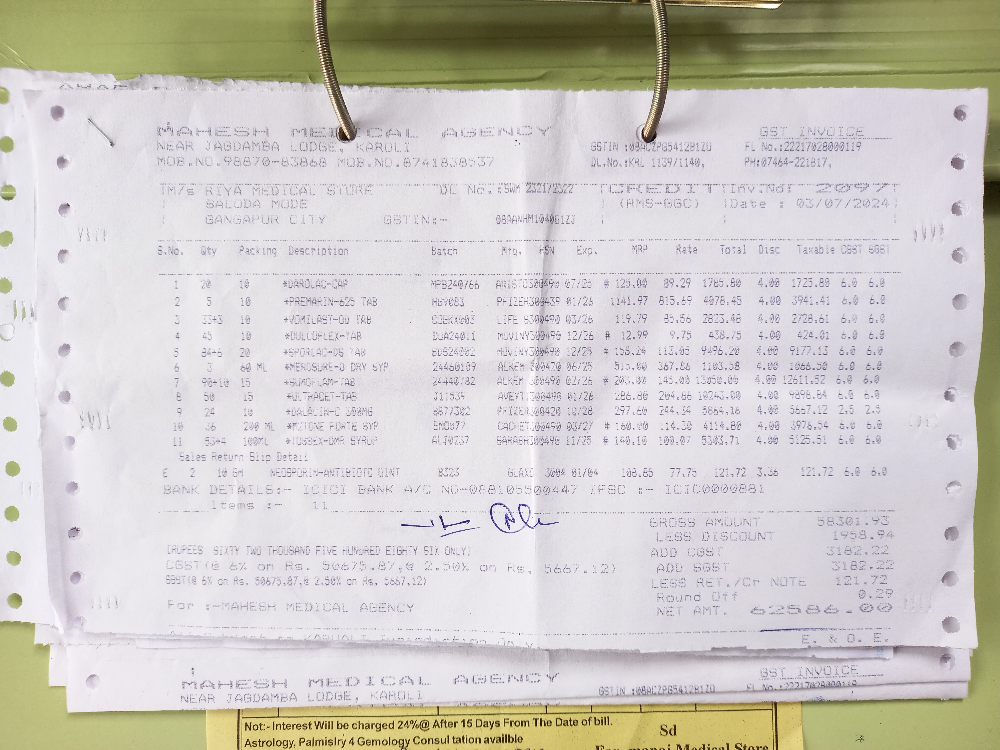 MAHESH MEDICAL AGENCY
NEAR JAGDAMBA LODGE, KAROLI
MOB.NO.98870-83868 MOB.NO.8741838537
GST INVOICE
GSTIN :08ACZPG5412B1ZU FL No.:22217028000119
DL.No.:KRL 1139/1140, PH:07464-221817,
M/s RIYA MEDICAL STORE DL No.:SWM 2321/2322
SALODA MODE
GANGAPUR CITY GSTIN:-
CREDIT Inv.No: 2097
(RMS-GGC) Date : 03/07/2024
S.No. Qty Packing Description Batch Mfg. HSN Exp. MRP Rate Total Disc Taxable CGST SGST
1 20 10 *DAROLAC-CAP MPB240766 ARISTO 300490 07/25 # 125.00 89.29 1785.80 4.00 1725.80 6.0 6.0
2 5 10 *PREMARIN-625 TAB PFIZER 300439 01/26 1141.97 815.69 4078.45 4.00 3941.41 6.0 6.0
3 33+3 10 *VOMILAST-DO TAB LIFE 300490 03/26 119.79 85.56 2823.48 4.00 2728.61 6.0 6.0
4 45 10 *DULCOFLEX-TAB DUA24011 300490 12/26 # 12.99 9.75 438.75 4.00 424.01 6.0 6.0
5 84+6 20 *SPORLAC-DS TAB 300490 12/25 # 158.24 113.05 9496.20 4.00 9177.13 6.0 6.0
6 3 60 ML DRY SYP 24460109 ALKEM 300420 06/25 515.00 367.86 1103.58 4.00 1066.50 6.0 6.0
7 90+10 15 *SUMOFLAM-TAB 24440782 ALKEM 300490 02/26 # 203.00 145.00 13050.00 4.00 12611.52 6.0 6.0
8 50 15 *ULTRACET-TAB 300490 01/26 286.80 204.86 10243.00 4.00 9898.84 6.0 6.0
9 24 10 *DALACIN-C 300MG 8877302 PFIZER 300420 10/28 297.60 244.34 5864.16 4.00 5667.12 2.5 2.5
10 36 200 ML FORTE SYP CACHET 300490 03/27 # 160.00 114.30 4114.80 4.00 3976.54 6.0 6.0
11 53+4 100ML *TUSSEX-DMR SYRUP 300490 11/25 # 140.10 100.07 5303.71 4.00 5125.51 6.0 6.0
Sales Return Slip Detail
E 2 10 GM NEOSPORIN-ANTIBIOTC OINT B323 GLAXO 3004 01/04 108.85 77.75 121.72 3.36 121.72 6.0 6.0
BANK DETAILS:- ICICI BANK A/C NO-088105500447 IFSC :- ICIC0000881
Items :- 11
GROSS AMOUNT 58301.93
LESS DISCOUNT 1958.94
(RUPEES SIXTY TWO THOUSAND FIVE HUNDRED EIGHTY SIX ONLY)
ADD CGST 3182.22
CGST(@ 6% on Rs. 50675.87,@ 2.50% on Rs. 5667.12)
ADD SGST 3182.22
SGST(@ 6% on Rs. 50675.87,@ 2.50% on Rs. 5667.12)
LESS RET./Cr NOTE 121.72
Round Off 0.29
For :-MAHESH MEDICAL AGENCY
NET AMT. 62586.00
E. & O. E.
MAHESH MEDICAL AGENCY
NEAR JAGDAMBA LODGE, KAROLI
GST INVOICE
GSTIN :08ACZPG5412B1ZU FL No.:22217028000119
Not:- Interest Will be charged 24%@ After 15 Days From The Date of bill.
Astrology, Palmistry 4 Gemology Consultation availble
Sd
For manoj Medical Store